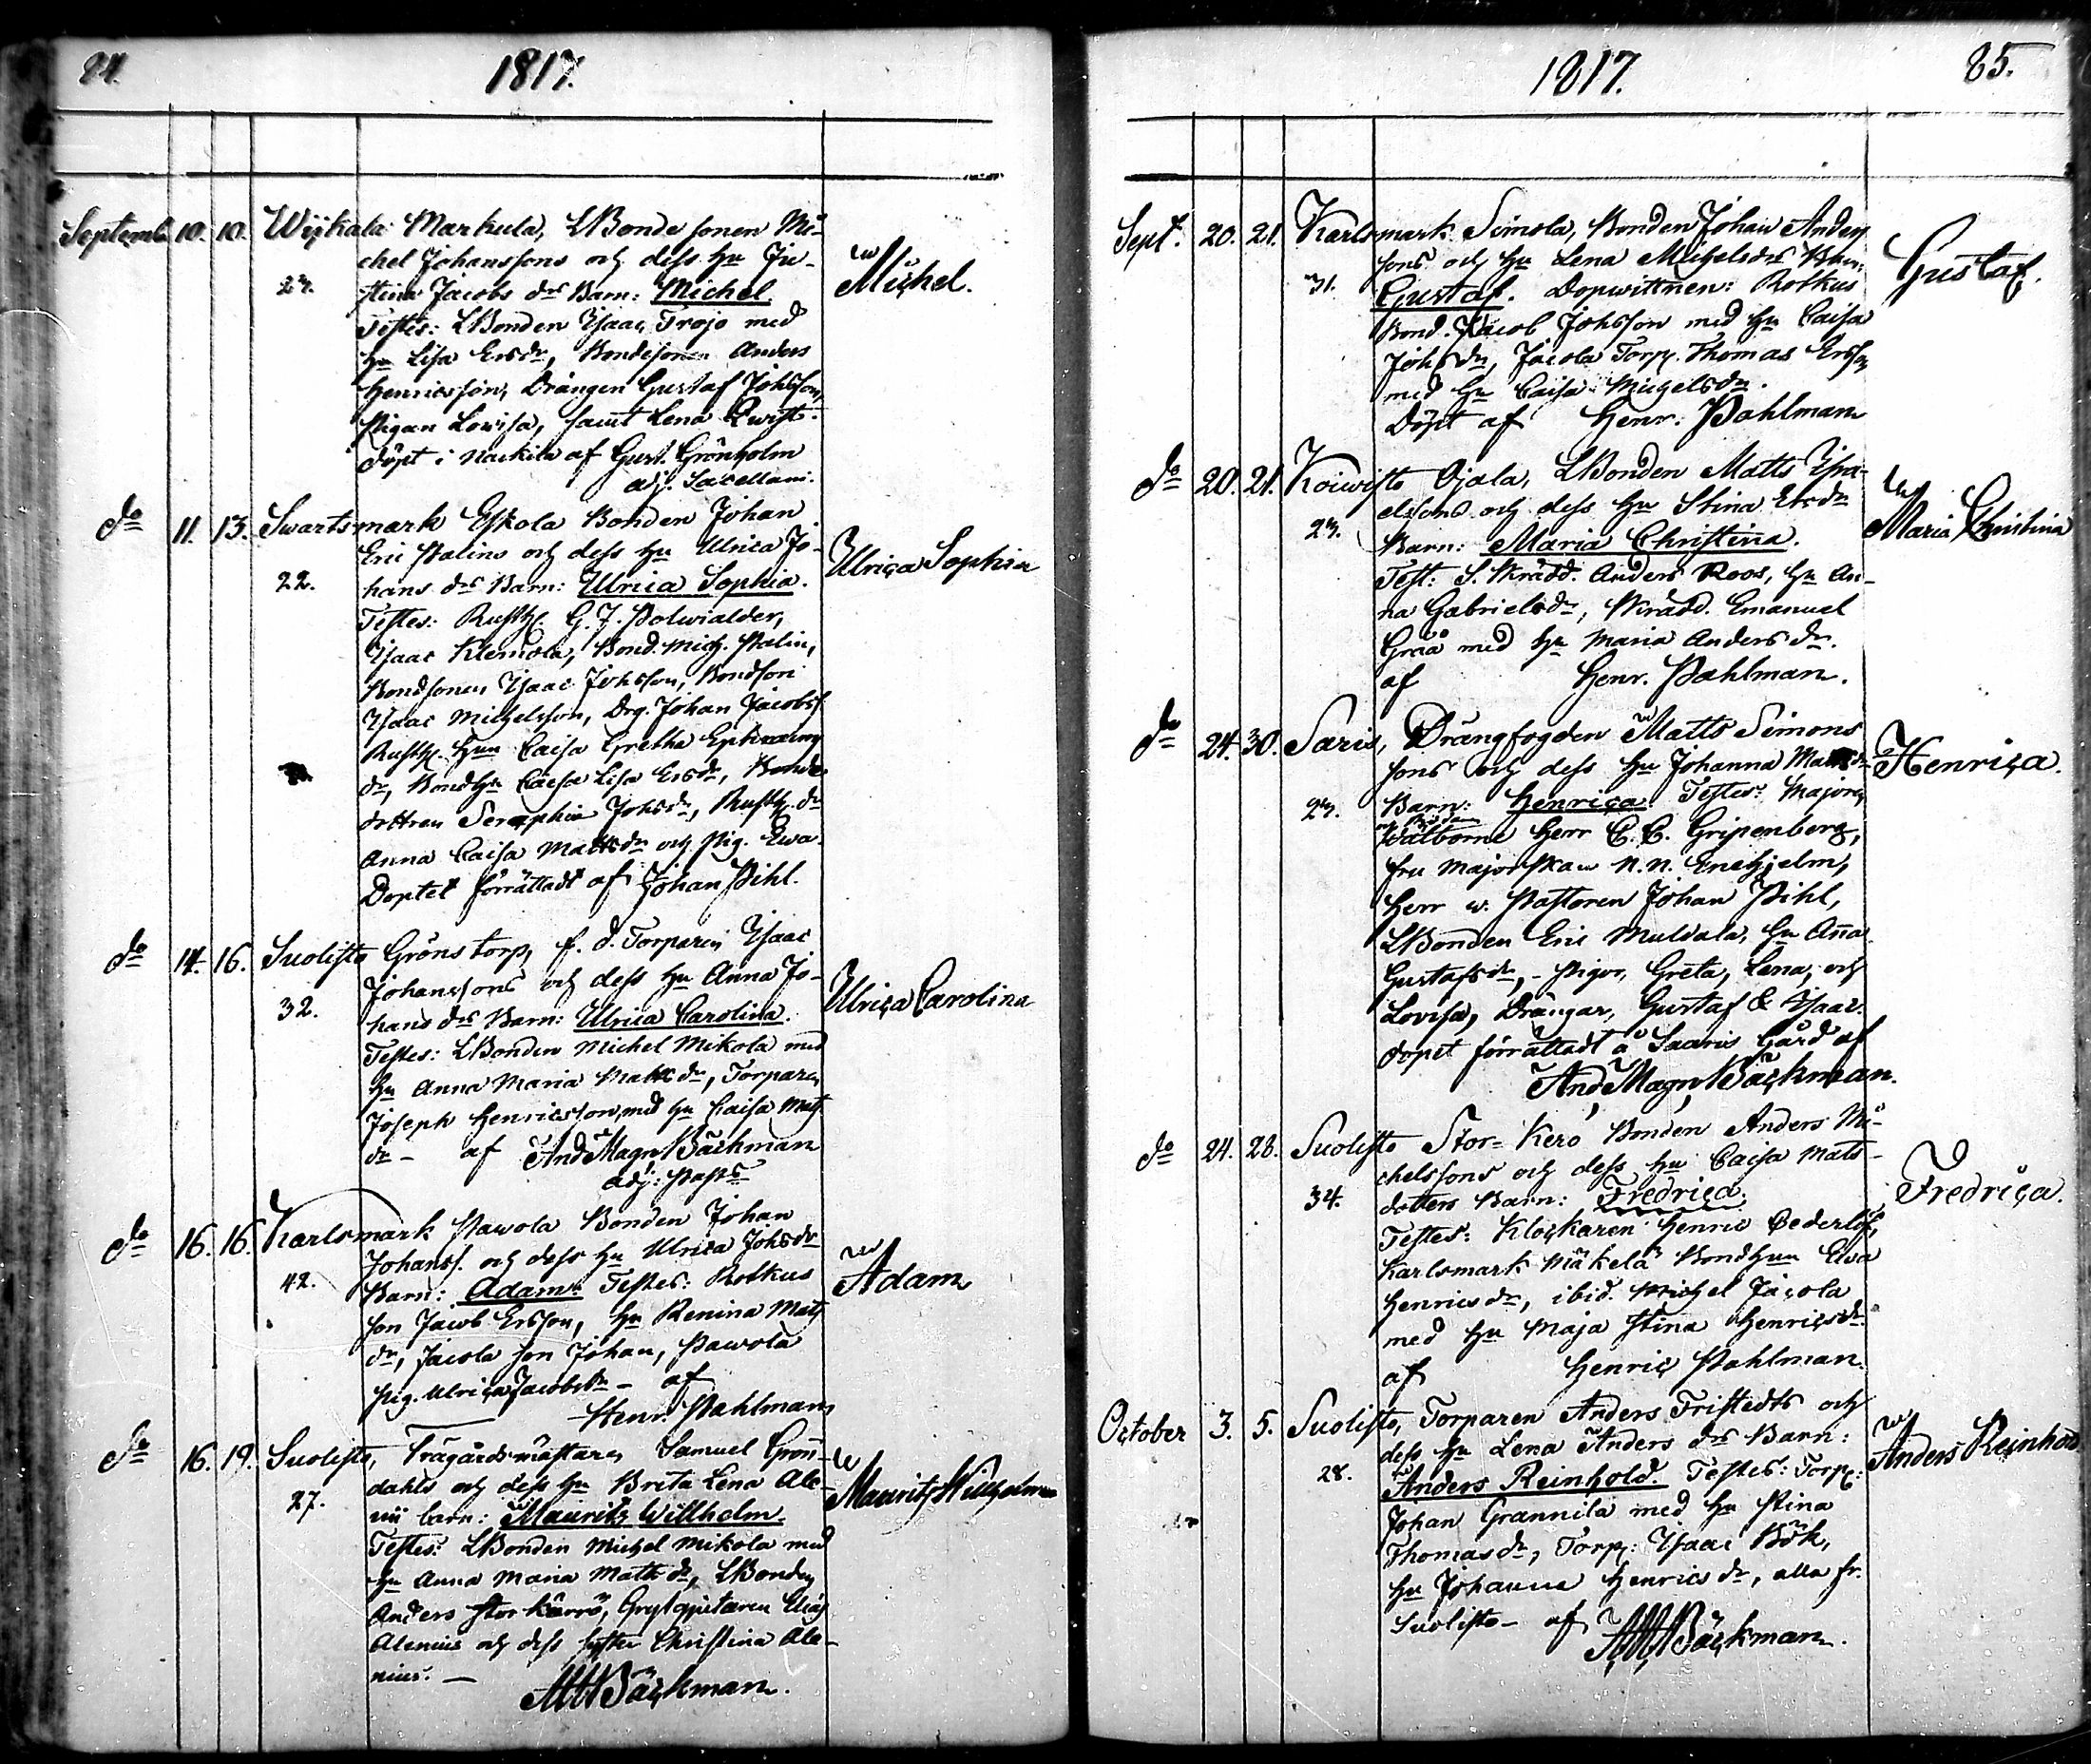 84.
1817.
Septemb. 10. 10. Wijkala Markula, LBondesonen Mi-
23. chel Johanssons och dess hu Ju-
stina Jacobs drs Barn: Michel. Michel.
Testes: LBonden Isaac Trojo med
hu Lisa Ersdr, Bondesonen Anders
Henricsson, Drängen Gustaf Johsson,
Pigan Lovisa, samt Lena Qwist.
döpt i Nackila af Gust. Grönholm
adj. Sacellani.
do 11. 13. Swartsmark Eskola Bonden Johan
Eric Stalins och dess hu Ulrica Jo-
22. hans drs Barn: Ulrica Sophia. Ulrica Sophia
Testes: Rusth. G. J. Polwialder,
Isaac Klemola, Bond. Mich. Stalin,
Bondsonen Isaac Johsson, Bondson
Isaac Michelsson, Drg. Johan Jacobss.
Rusth. hun Caisa Gretha
dr, Bondhu Caisa Lisa Ersdr, Bonde
dottren Seraphia Johsdr, Rusth. dr
Anna Caisa Mattsdr och Pig. Ewa
Doptet förrättadt af Johan Pihl.
do 14. 16. Suolisto Grönstorp, f. d. Torparen Isaac
Johanssons och dess hu Anna Jo-
32. hans drs Barn: Ulrica Carolina. Ulrica Carolina
Testes: LBonden Michel Mikola med
hu Anna Maria Matts dr, Torparen
Joseph Henricsson, med hu Caisa Matts
dr - af And Magn Bäckman
adj: Past:
do 16. 16. Karlsmark Pawola Bonden Johan
Johanss. och dess hu Ulrica Johsdrs
42. Barn: Adam. Testes: Rotkus Adam
son Jacob Ersson, hu Renina Matts
dr, Jacola son Johan, Pawola
Pig. Ulrica Jacobsdr - af
Henr. Pahlman
do 16. 19. Suolisto, Trägårdsmästaren Samuel Grön-
dahls och dess hu Brita Lena Ale-
27. nii barn: Mauritz Willhelm. Mauritz Wilhelm
Testes: LBonden Michel Mikola med
hu Anna Maria Matts dr, LBonden
Anders Storkärrö, Elias
Alenius och dess syster Christina Ale-
nius. — AMBäckman.
1817. 85.
Sept. 20. 21. Karlsmark Simola, Bonden Johan Anders
sons och hu Lena Michelsdrs Barn:
31. Gustaf. Dopwittnen: Rotkus Gustaf.
Bond. Jacob Johsson med hu Caisa
Johsdr, Jacola Torp. Thomas Ersson
med hu Caisa Michelsdr.
Döpt af Henr: Pahlman
do 20. 21. Koiwisto Ojala, LBonden Matts Isra-
elssons och dess hu Stina Ersdrs
23. Barn: Maria Christina. Maria Christina
Test: S. Skrädd. Anders Roos, hu An-
na Gabrielsdr, Skrädd. Emanuel
Gråå med hu Maria Anders dr.
af Henr. Pahlman.
do 24. 30. Saris, Drängfogden Matts Simons
sons och dess hu Johanna Mattsdrs Henrica.
23. Barn: Henrica. Testes: Majoren
och Ridd.
Wälborne Herr C. C. Gripenberg,
fru Majorskan N. N. Enehjelm,
Herr v. Pastoren Johan Pihl,
LBonden Eric Muldala, hu Anna
Gustafsdr, - Pigor, Greta, Lena, och
Lovisa, Drängar, Gustaf & Isaac.
dopet förrättadt å Saaris Gård af
And Magn Bäckman.
do 24. 28. Suolisto Stor-Kerö Bonden Anders Mi-
chelssons och dess hu Caisa Mats-
34. dotters Barn: Fredrica. Fredrica.
Testes: Klockaren Henric Cederlöf,
Karlsmark Mäkelä Bondhun Elsa
Henricsdr, ibid. Michel Jacola
med hu Maja Stina Henricsdr
af Henric Pahlman.
October 3. 5. Suolisto, Torparen Anders Fristedts och
dess hu Lena Anders drs Barn:
28. Anders Reinhold. Testes: Torp: Anders Reinhold
Johan Grannila med hu Stina
Thomasdr, Torp: Isaac Böök,
hu Johanna Henrics dr, alla fr.
Suolisto - af AMBäckman.